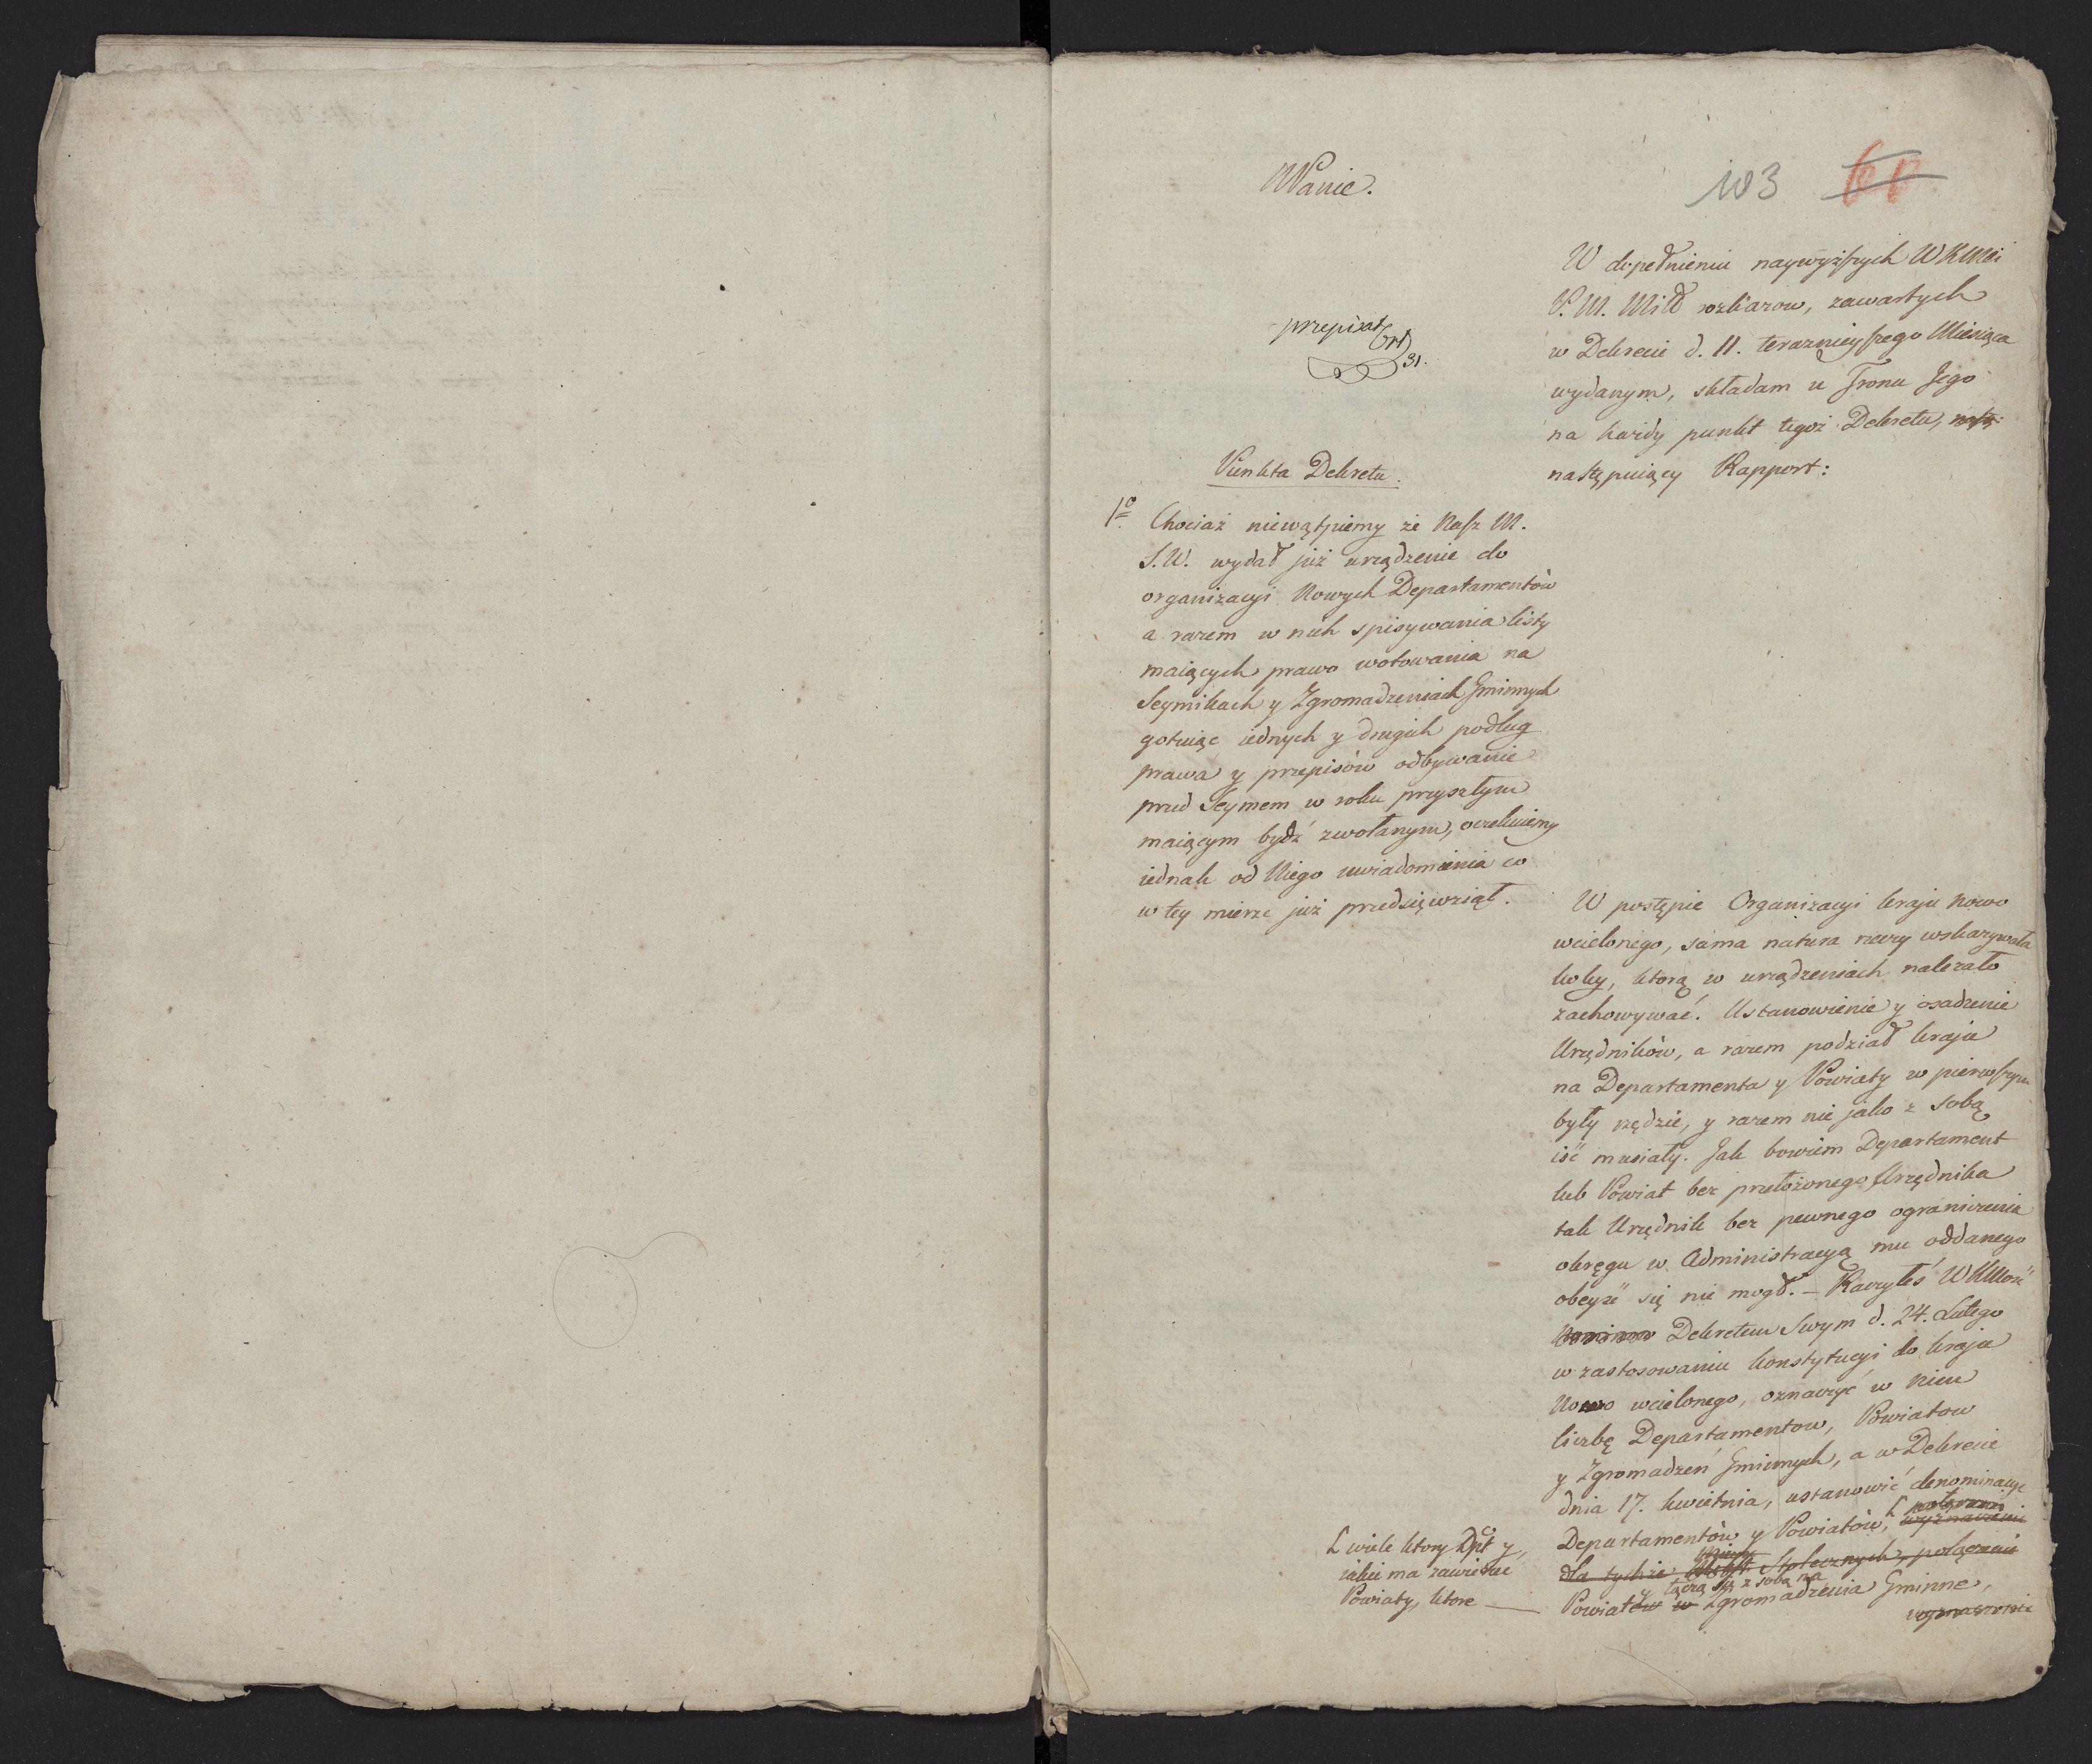 NPanie.
103 60
W dopełnieniu naywyższych WKMci
P. M. Mił rozkazow, zawartych
w Dekrecie d. 11. teraznieyszego Miesiąca
wydanym, składam u Tronu Jego
na każdy punkt tegoż Dekretu,
następuiący Rapport:
przepisał
31.
Punkta Dekretu.
1o Chociaż niewątpiemy że Nasz M.
S. W. wydał już urządzenie do
organizacyi Nowych Departamentów
a razem w nich spisywania listy
maiących prawo wotowania na
Seymikach y Zgromadzeniach Gminnych
gotuiąc iednych y drugich podług
prawa y przepisów odbywanie
przed Seymem w roku przyszłym
maiącym bydź zwołanym, oczekuiemy
iednak od Niego uwiadomienia co
w tey mierze już przedsięwziął.
W postępie Organizacyi kraju nowo
wcielonego, sama natura rzeczy wskazywała
koley, ktorą w urządzeniach należało
zachowywać. Ustanowienie y osadzenie
Urzędników, a razem podział kraju
na Departamenta y Powiaty w pierwszym
były rzędzie, y razem nie jako z sobą
iść musiały. Jak bowiem Departament
lub Powiat bez przełożonego Urzędnika
tak Urzędnik bez pewnego ograniczenia
okręgu w Administracyą mu oddanego
obeyść się nie mogł. – Raczyłeś WKMość
Dekretem Swym d. 24. Lutego
w zastosowaniu konstytucyi do kraju
Nowo wcielonego, oznaczyć w nim
liczbę Departamentow, Powiatow
y Zgromadzeń Gminnych, a w Dekrecie
dnia 17. kwietnia, ustanowić denominacye
Departamentów y Powiatów, wyznaczenie
dla tychże Miast Stołecznych, połączenie
łączą się z sobą na
Powiatów w Zgromadzenia Gminne,
wyznaczenie
wiele ktory Dpt y,
iakie ma zawierać
Powiaty, ktore